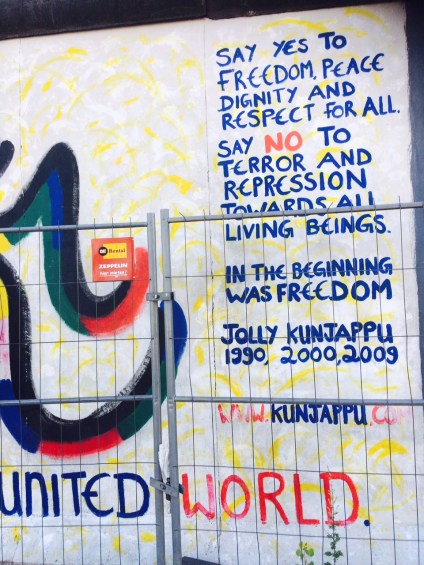 SAY YES TO
FREEDOM, PEACE
DIGNITY AND
RESPECT FOR ALL.
SAY NO TO
TERROR AND
REPRESSION
TOWARDS ALL
LIVING BEINGS.
IN THE BEGINNING
WAS FREEDOM
JOLLY KUNJAPPU
1990, 2000, 2009
WWW.KUNJAPPU.COM
Rental
ZEPPELIN
UNITED WORLD.